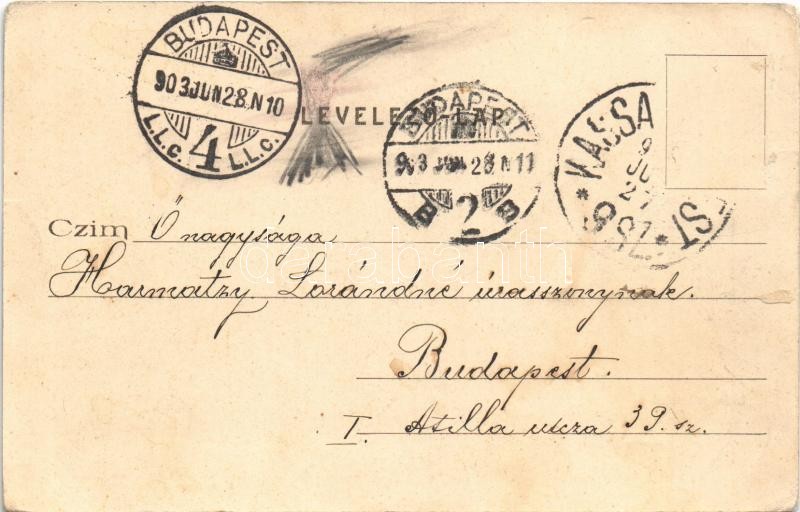 BUDAPEST
903 JUN 28 N 10
L.L.c. 4 L.L.c.
LEVELEZŐ-LAP
BUDAPEST
903 JUN 28 N 11
B 2 B
KASSA
ST
Czim Ő nagysága
Harmatzy Lorándné úrasszonynak.
Budapest.
I. Atilla utcza 39. sz.
darabanth